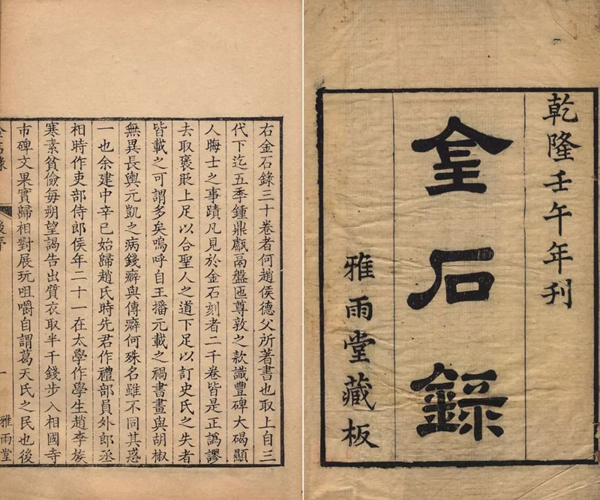 乾隆壬午年刊
金石錄
雅雨堂藏板
右金石錄三十卷者何趙侯德父所著書也取上自三
代下迄五季鍾鼎甗鬲盤匜尊敦之款識豐碑大碣顯
人晦士之事蹟凡見於金石刻者二千卷皆是正譌謬
去取褒貶上足以合聖人之道下足以訂史氏之失者
皆載之可謂多矣嗚呼自王播元載之禍書畫與胡椒
無異長輿元凱之病錢癖與傳癖何殊名雖不同其惑
一也余建中辛巳始歸趙氏時先君作禮部員外郎丞
相時作吏部侍郎侯年二十一在太學作學生趙李族
寒素貧儉每朔望謁告出質衣取半千錢步入相國寺
市碑文果實歸相對展玩咀嚼自謂葛天氏之民也後
金石錄 後序 一 雅雨堂